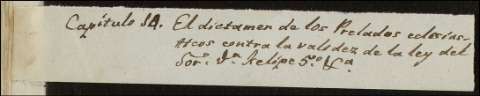 Capítulo 14. El dictamen de los Prelados eclesias-
ticos contra la validez de la ley del
Sor. Dn. Felipe 5º. &ca.